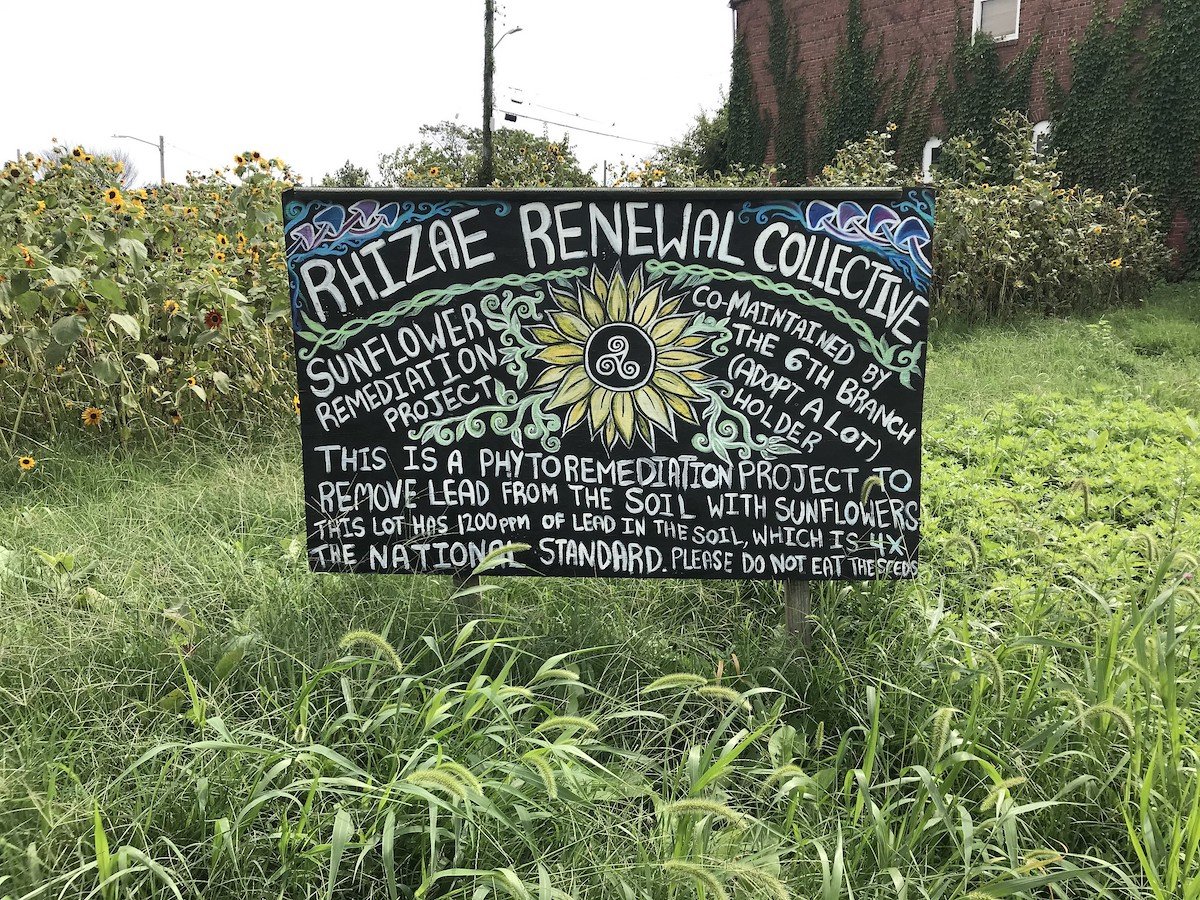 RHIZAE RENEWAL COLLECTIVE
SUNFLOWER
REMEDIATION
PROJECT
CO-MAINTAINED
BY
THE 6TH BRANCH
(ADOPT A LOT)
HOLDER
THIS IS A PHYTOREMEDIATION PROJECT TO
REMOVE LEAD FROM THE SOIL WITH SUNFLOWERS
THIS LOT HAS 1200 PPM OF LEAD IN THE SOIL, WHICH IS 4X
THE NATIONAL STANDARD. PLEASE DO NOT EAT THE SEEDS